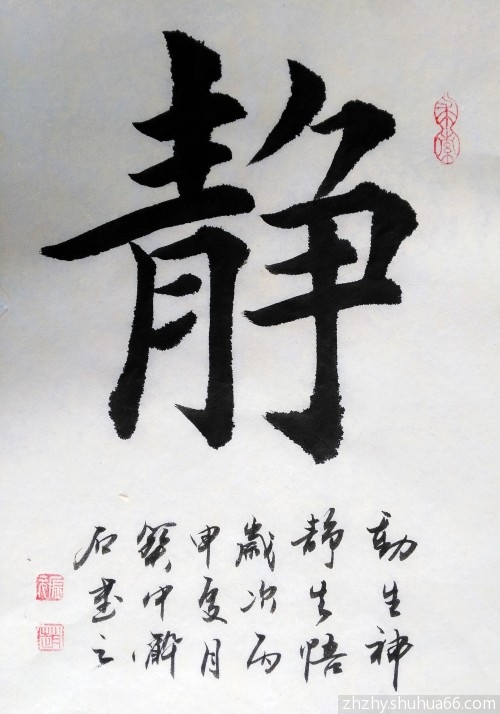 静
動生神
静生悟
歲次丙
申夏月
中
石書之
zhzhy.shuhua66.com